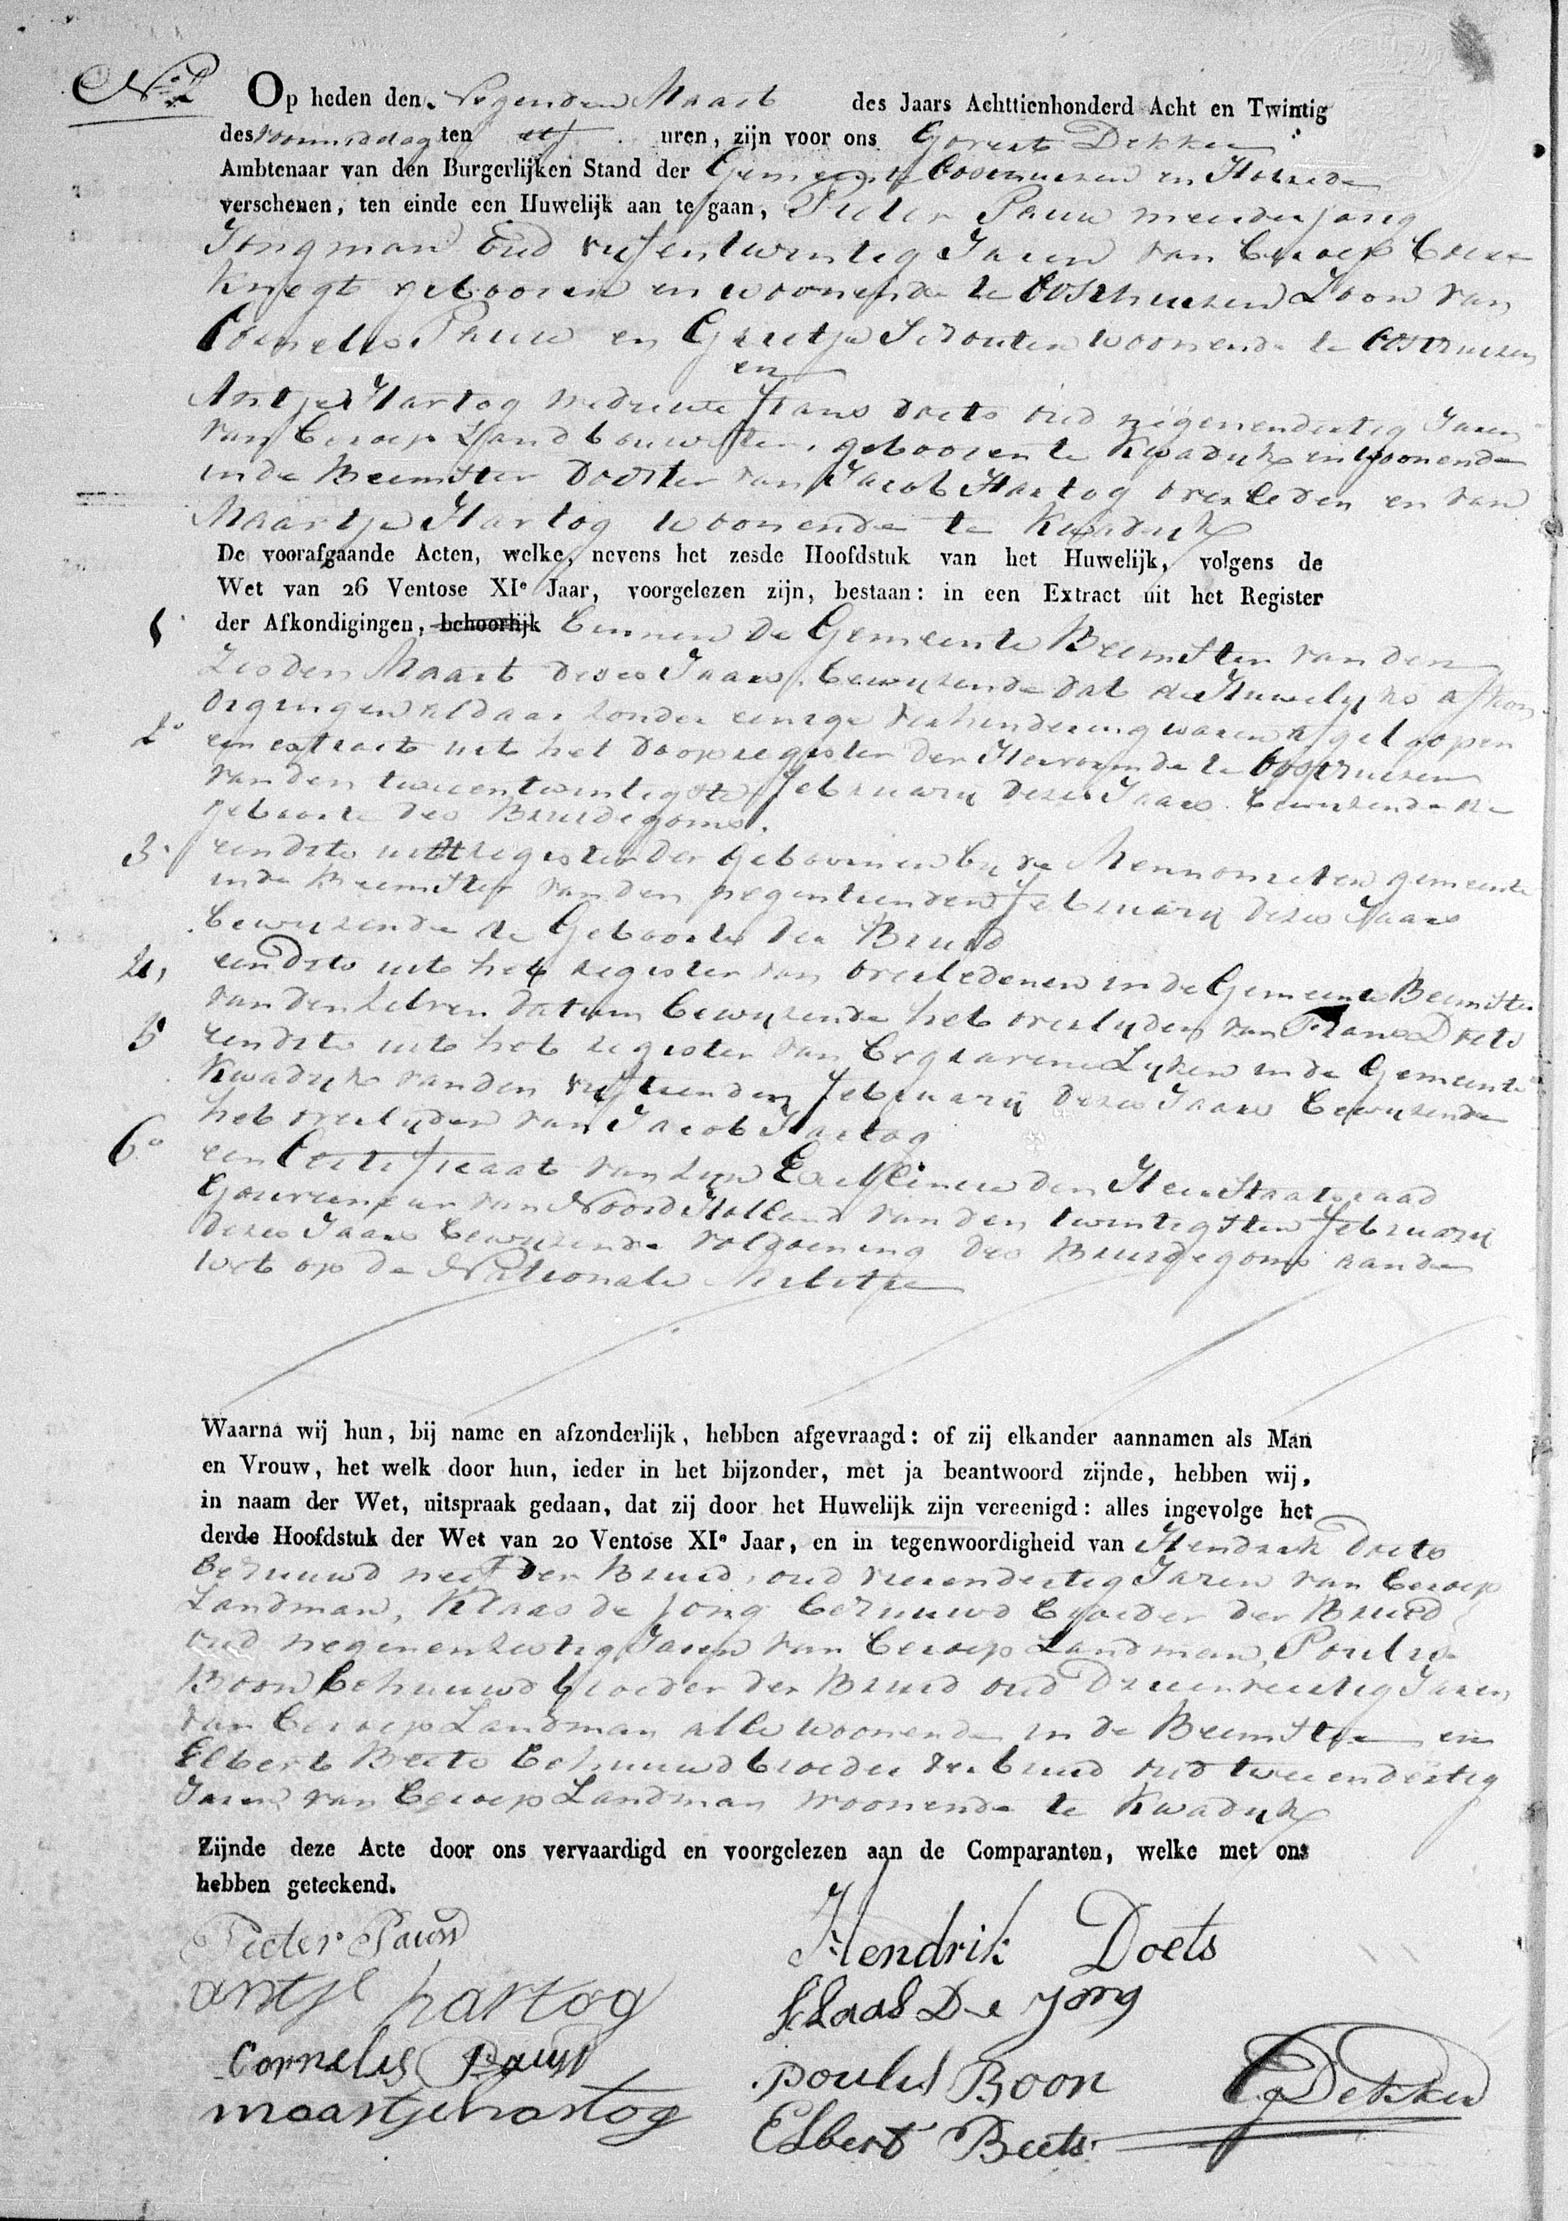 No 2
Op heden den Negenden Maart des Jaars Achttienhonderd Acht en Twintig
des voormiddag ten elf uren, zijn voor ons Govert Dekker
Ambtenaar van den Burgerlijken Stand der Gemeente Oosthuizen en Hobrede
verschenen, ten einde een Huwelijk aan te gaan, Pieter Pauw meerderjarig
Jongman oud vijfentwintig Jaren van beroep boere
knegt gebooren en woonende te Oosthuizen Zoon van
Cornelis Pauw en Grietje Schouten woonende te Oosthuizen
en
Antje Hartog weduwe Frans Doets oud negenendertig Jaren
van beroep Landbouwster, gebooren te Kwadijk en woonende
in de Beemster Dochter van Jacob Hartog overleden en van
Maartje Hartog woonende te Kwadijk
De voorafgaande Acten, welke, nevens het zesde Hoofdstuk van het Huwelijk, volgens de
Wet van 26 Ventose XIe Jaar, voorgelezen zijn, bestaan: in een Extract uit het Register
1 der Afkondigingen, behoorlijk binnen de Gemeente Beemster van den
Zesden Maart dezes Jaars, bewijzende dat de Huwelijks afkon
digingen aldaar zonder eenige verhindering waren afgeloopen
2o een extract uit het doopregister der Hervormde te Oosthuizen
van den tweeentwintigste February dezes Jaars bewijzende de
geboorte des Bruidegoms.
3. een dito uit register der Geboornen by de Mennoniten gemeente
in de Beemster van den negentienden February dezes Jaars
bewijzende de Geboorte der Bruid
4, een dito uit het register van overledenen in de Gemeente Beemster
van den zelven datum bewijzende het overlijden van Frans Doets
5 een dito uit het register van begravene Lijken in de Gemeente
Kwadijk van den vijftienden February dezes Jaars bewijzende
het overlijden van Jacob Hartog
6o een Certificaat van zijn Excellencie den Heer Staatsraad
Gouverneur van Noord Holland van den twintigsten February
dezes Jaars bewijzende voldoening des Bruidegoms aan de
wet op de Nationale Militie
Waarna wij hun, bij name en afzonderlijk, hebben afgevraagd: of zij elkander aannamen als Man
en Vrouw, het welk door hun, ieder in het bijzonder, met ja beantwoord zijnde, hebben wij,
in naam der Wet, uitspraak gedaan, dat zij door het Huwelijk zijn vereenigd: alles ingevolge het
derde Hoofdstuk der Wet van 20 Ventose XIe Jaar, en in tegenwoordigheid van Hendrik Doets
behuuwd neef der Bruid, oud vierendertig Jaren van beroep
Landman, Klaas de Jong behuuwd broeder der Bruid
oud negenenzestig Jaren van beroep Landman, Poulus
Boon behuuwd broeder der Bruid oud Drieenveertig Jaren
van beroep Landman alle woonende in de Beemster en
Elbert Beets behuuwd broeder der bruid oud tweeendertig
Jaren van beroep Landman woonende te Kwadijk
Zijnde deze Acte door ons vervaardigd en voorgelezen aan de Comparanten, welke met ons
hebben geteekend.
Pieter Pauw
antje hartog
Cornelis Pauw
maartje hartog
Hendrik Doets
Klaas De Jong
poulus Boon
Elbert Beets
G Dekker